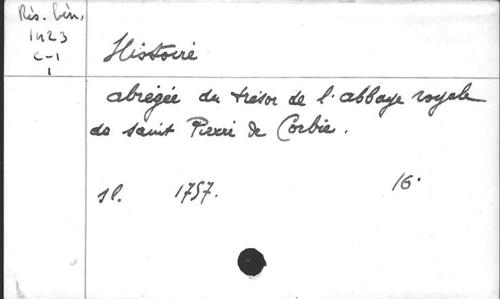 Rés. Gén.
1423
C-1
1
Histoire
abrégée du trésor de l'abbaye royale
de saint Pierre de Corbie.
sl. 1757. 16°